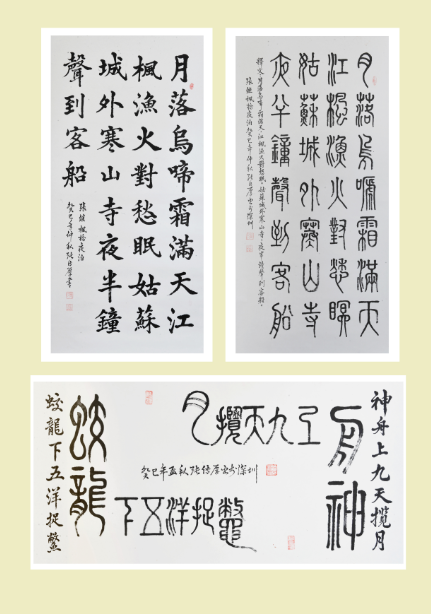 月落烏啼霜滿天江
楓漁火對愁眠姑蘇
城外寒山寺夜半鐘
聲到客船
張繼楓橋夜泊
月落烏啼霜滿天
江楓漁火對愁眠
姑蘇城外寒山寺
夜半鐘聲到客船
神舟上九天攬月
神舟
上九天攬月
下五洋捉鱉
蛟龍
蛟龍下五洋捉鱉